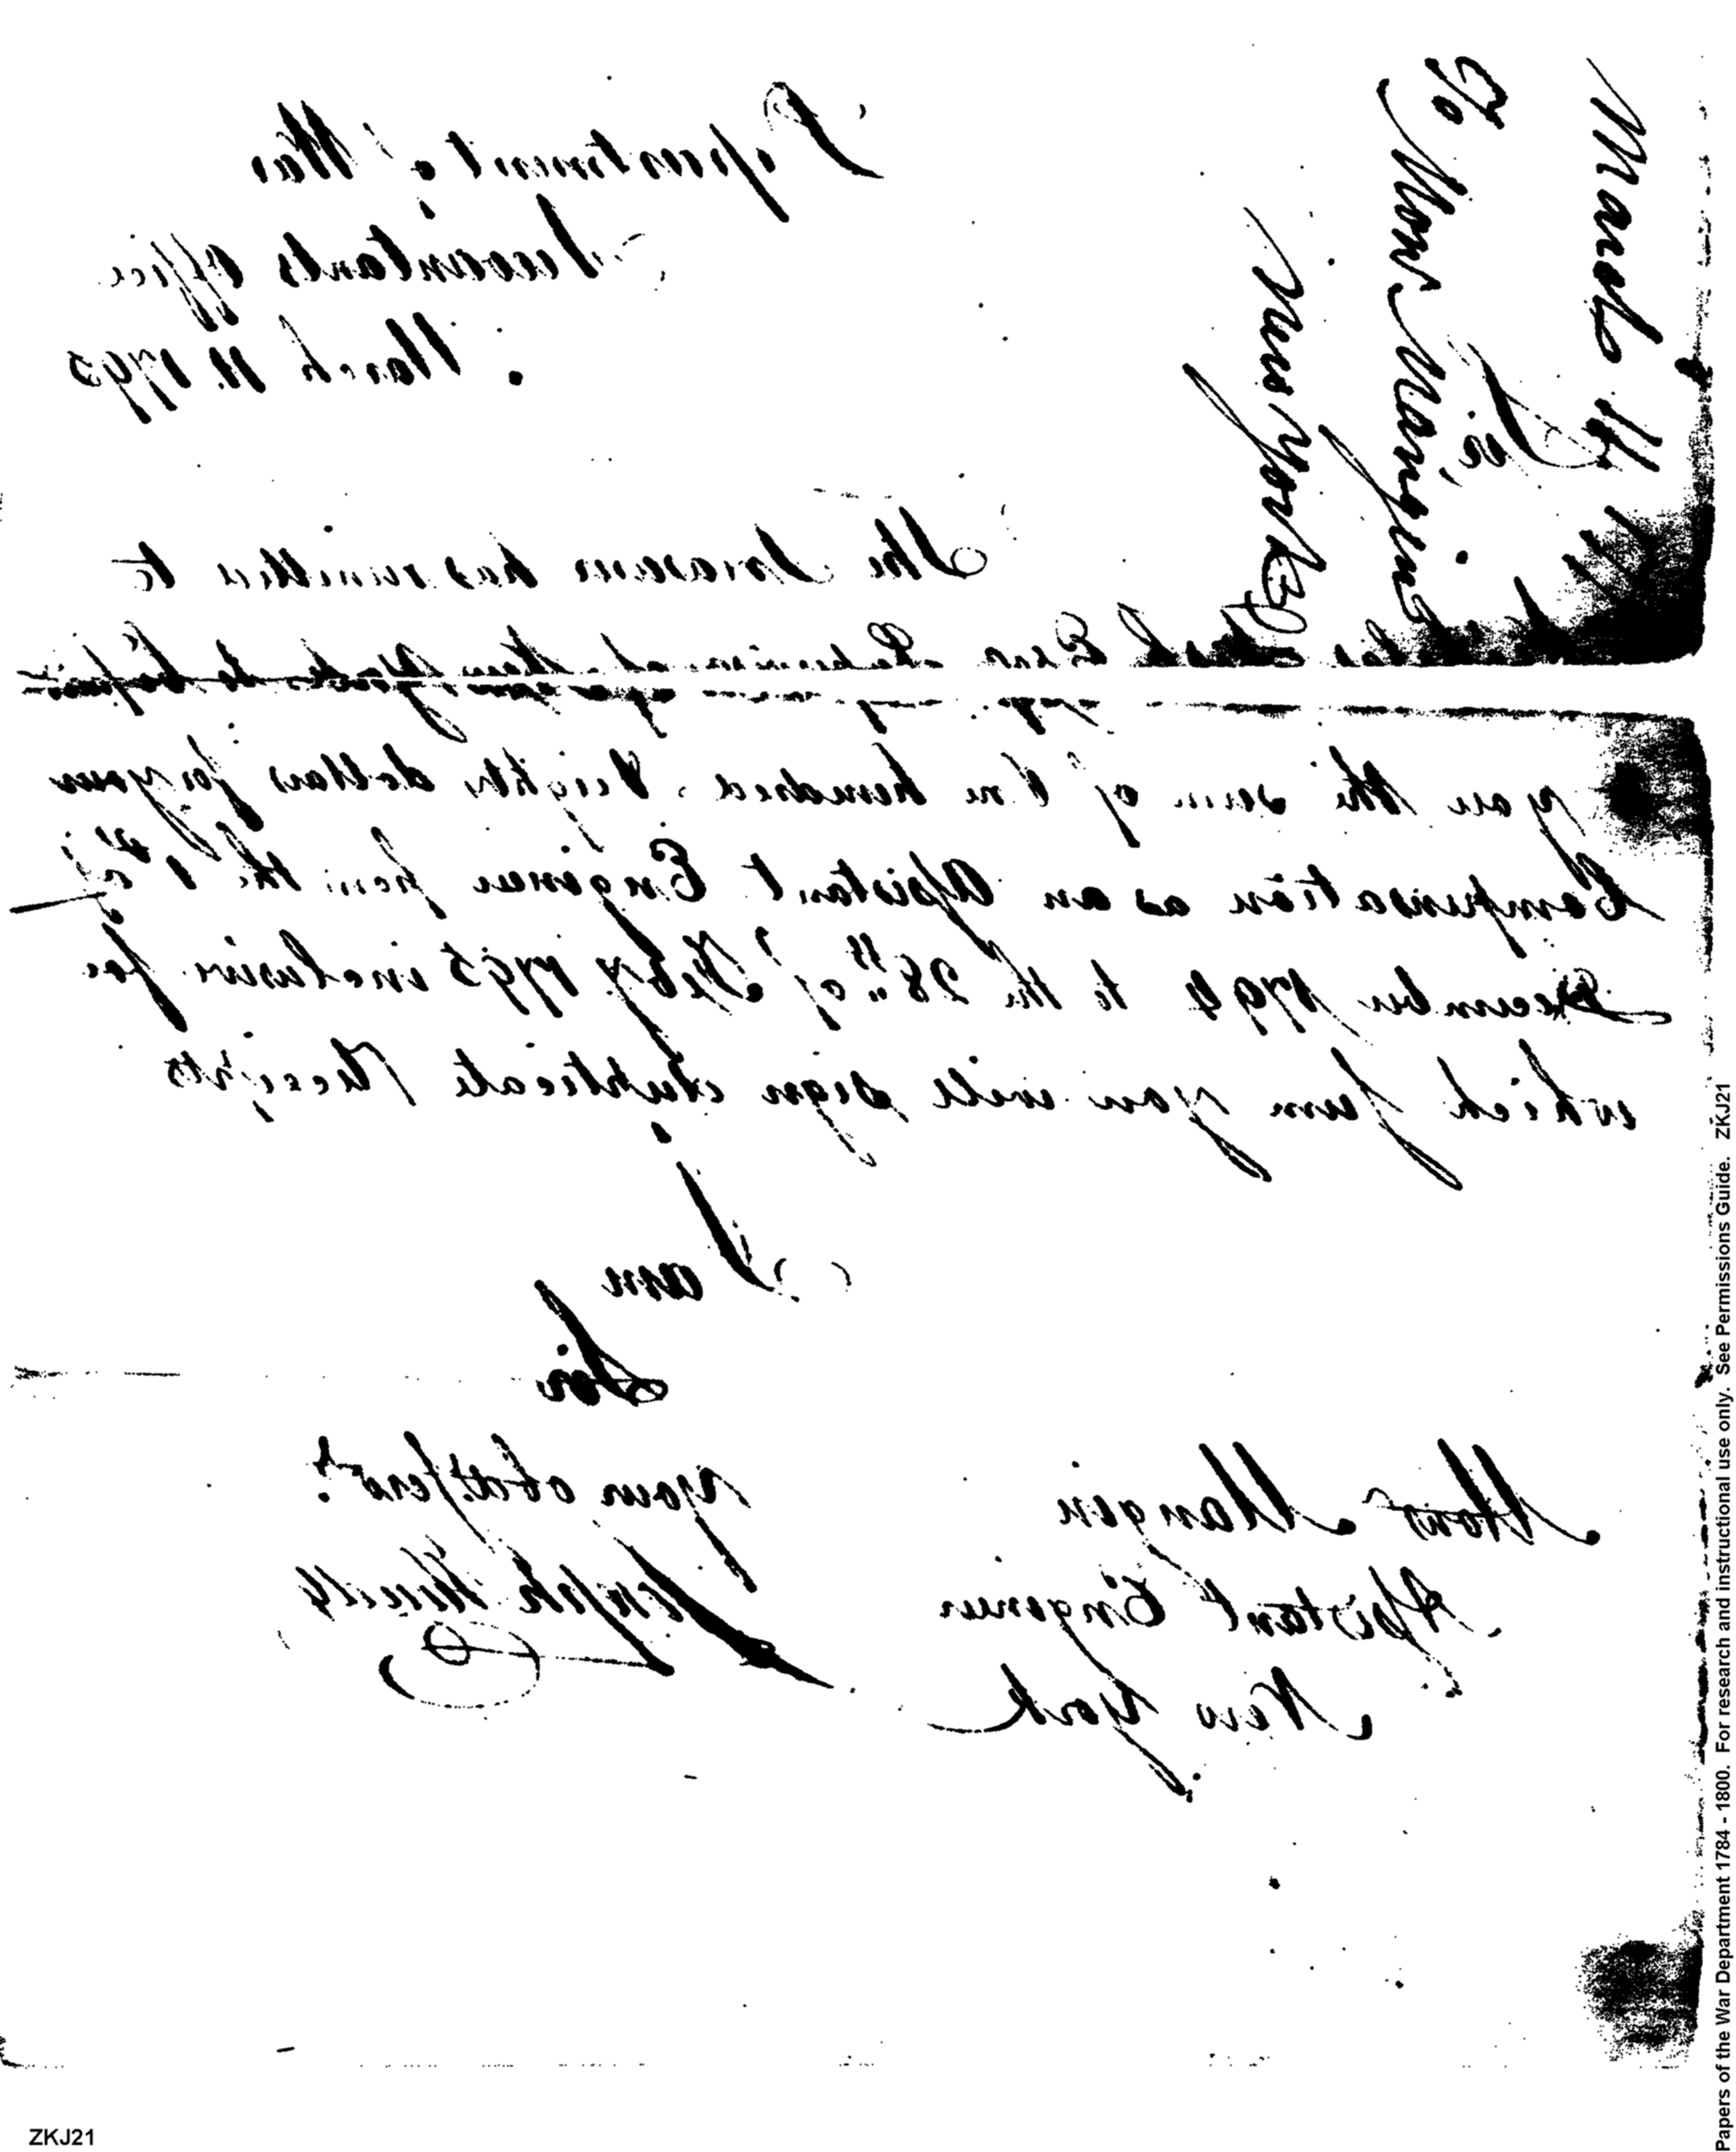 Department of War
Accountants Office
March 11. 1795
Sir,
The Treasurer has remitted to
Esqr at New York to be paid
you the sum of One hundred & eighty dollars for your
Compensation as an Assistant Engineer from the 1st of
December 1794 to the 28th of Feby 1795 inclusive for
which sum you will sign duplicate Receipts
I am
Sir
your obdt servt
Joseph Howell
Monsr Mangin
Assistant Engineer
New York
March 11
To Monsr Mangin
New York
ZKJ21
Papers of the War Department 1784 - 1800. For research and instructional use only. See Permissions Guide. ZKJ21